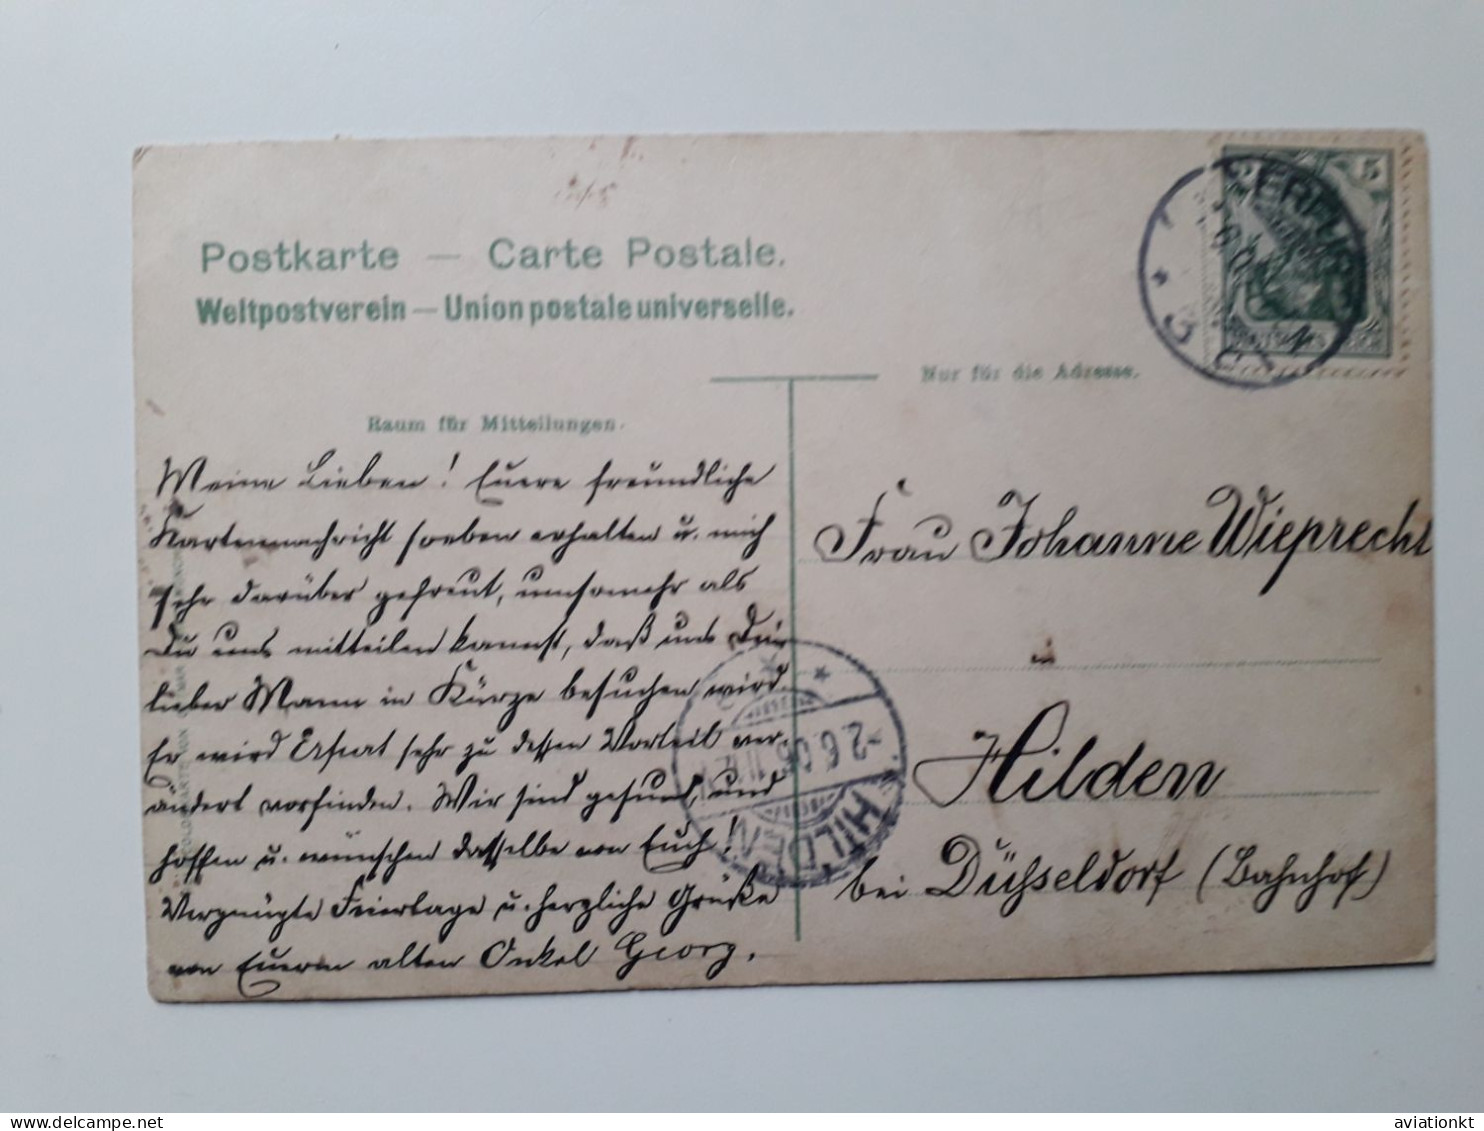 Postkarte — Carte Postale.
Weltpostverein — Union postale universelle.
5
DEUTSCHES REICH
BERLIN
Nur für die Adresse.
Raum für Mitteilungen.
Meine Lieben! Euere freundliche
Kartennachricht soeben erhalten u. mich
sehr darüber gefreut, umsomehr als
Du uns mitteilen kannst, daß uns Dein
lieber Mann in Kürze besuchen wird.
Er wird sehr zu dessen Vorteil ver-
ändert vorfinden. Wir sind gesund, und
hoffen u. wünschen dasselbe von Euch!
Vergnügte Feiertage u. herzliche Grüße
von Euerm alten Onkel Georg.
Frau Johanne Wieprecht
in
Hilden
bei Düsseldorf (Bahnhof)
HILDEN
2.6.06
aviationkt